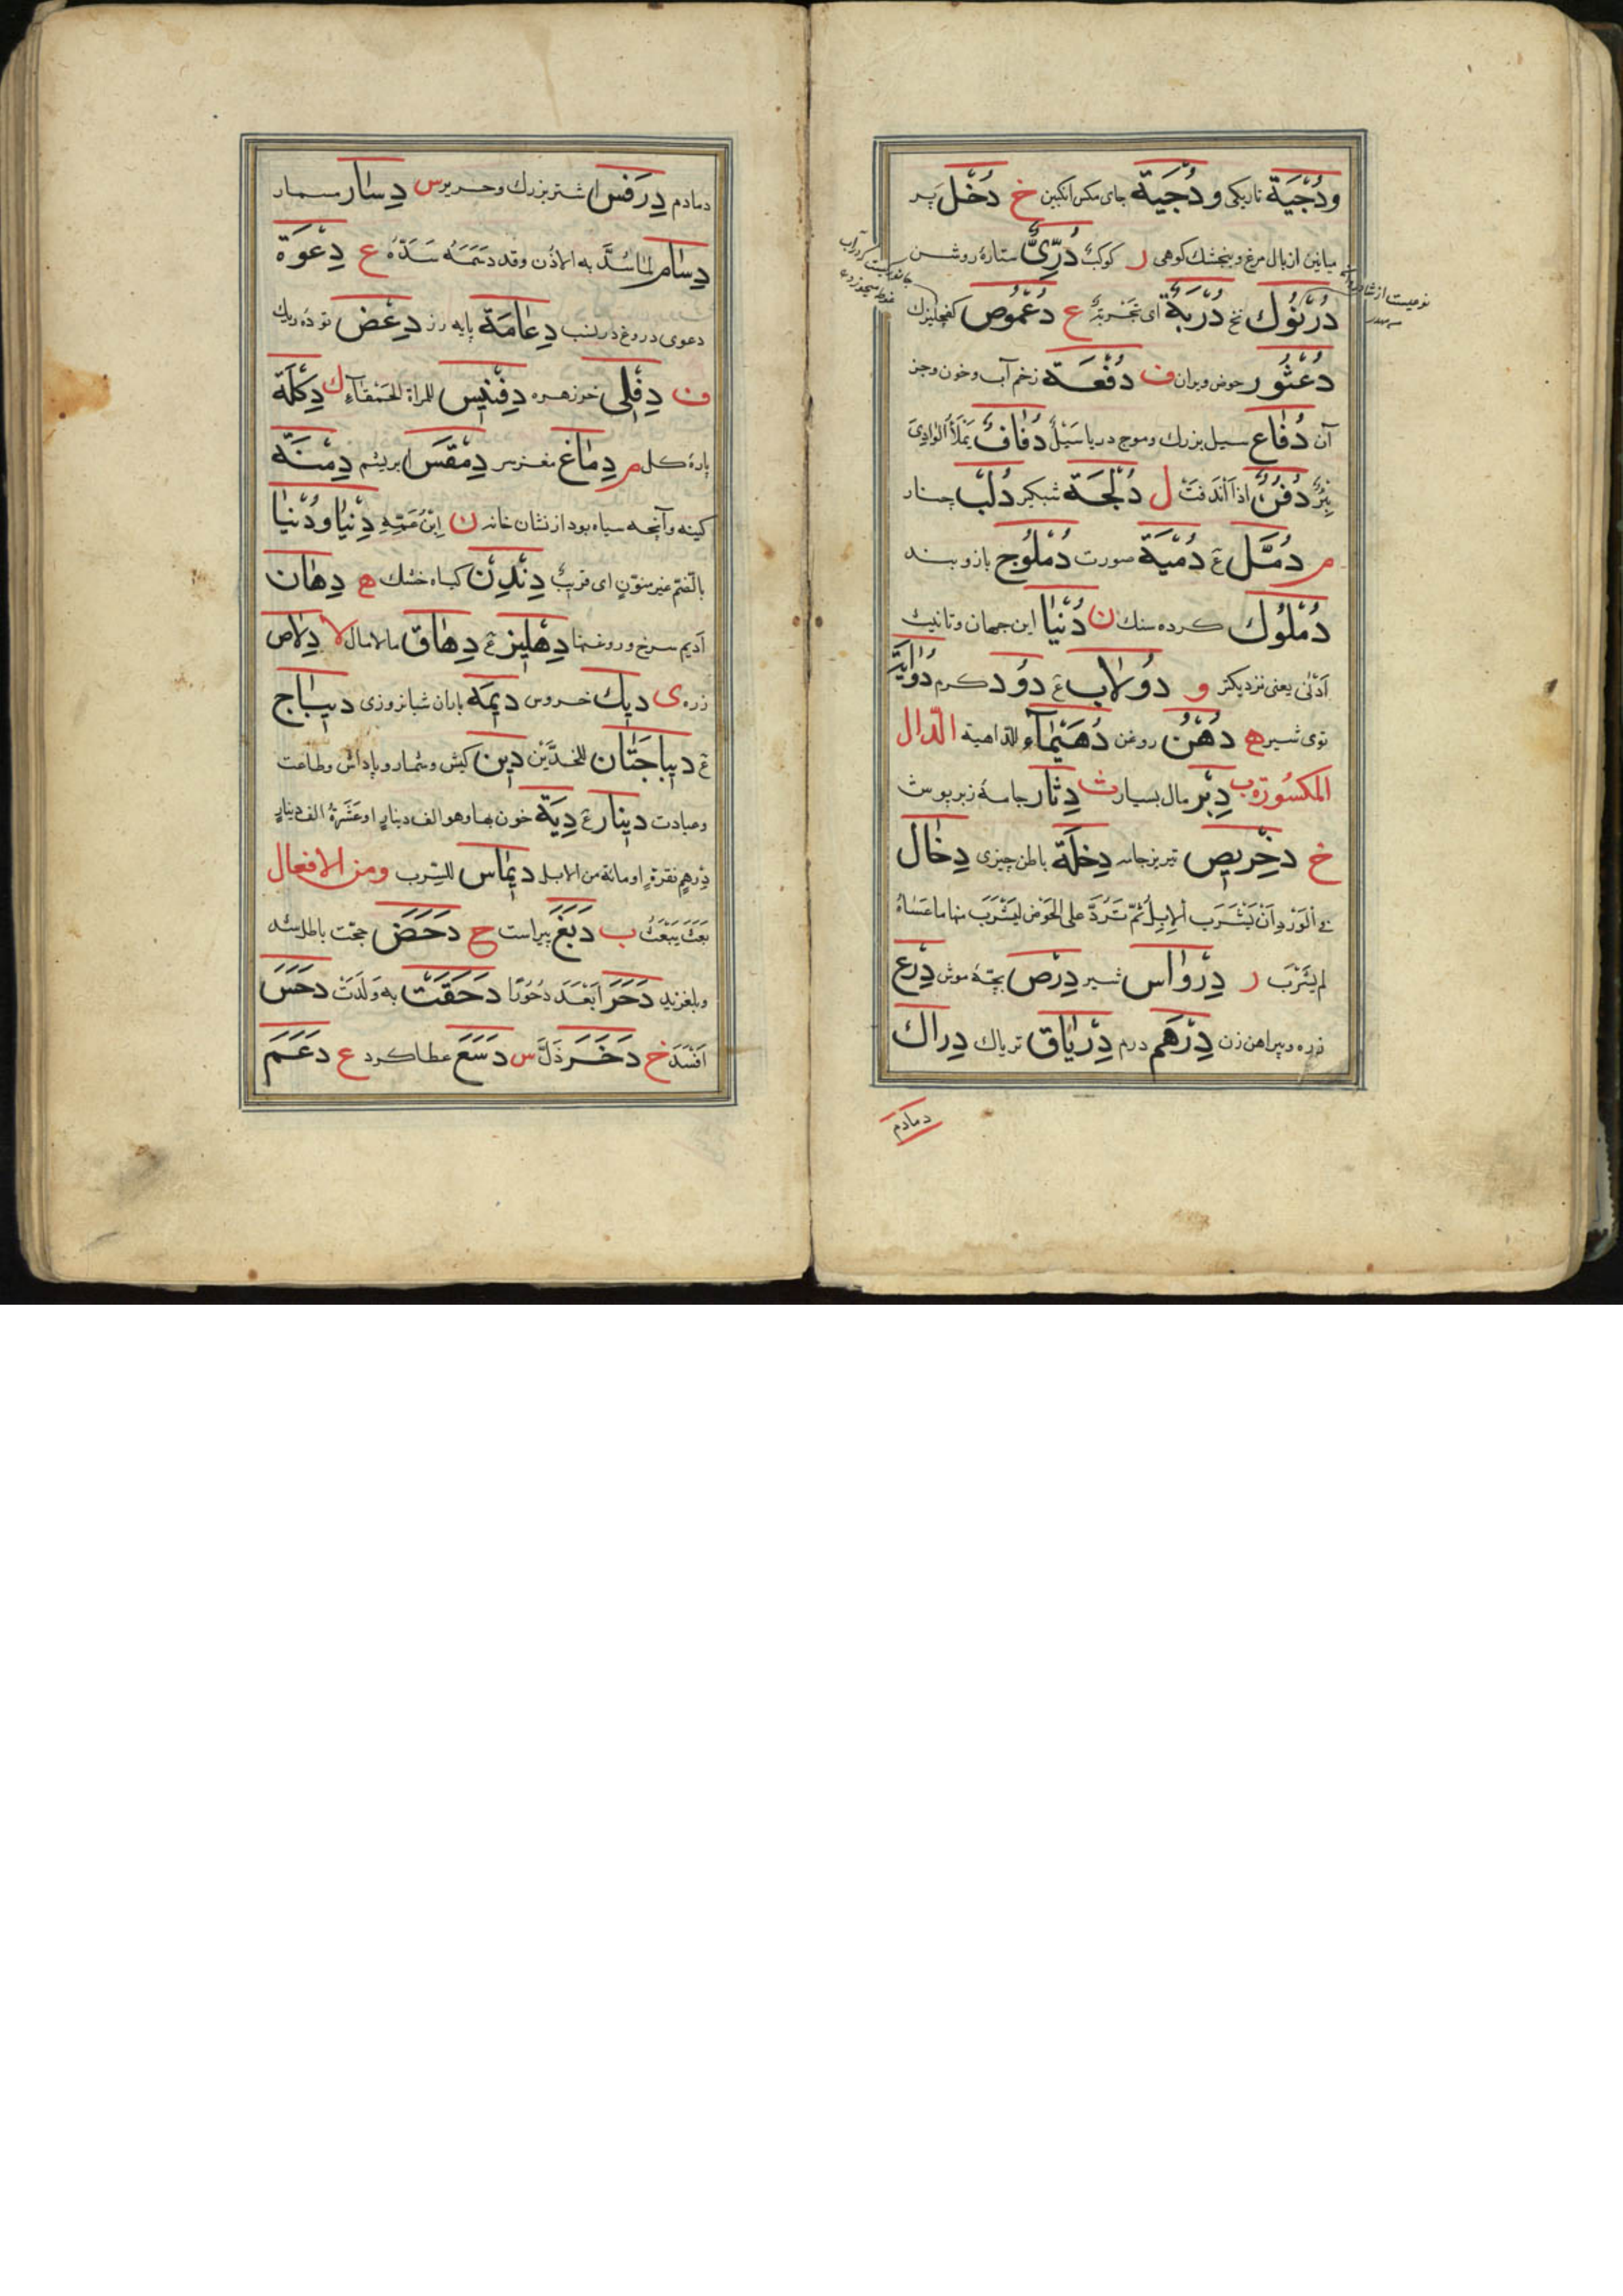 ودُجْيَة تاريكى ودُجْيَة جاى مكس انكبين خ دُخَّل پر
ميانين از بال مرغ و بنجشك كوهى ر كوكبٌ دُرِّىٌّ ستارۀ روشن
دُرْنُوك نخ دُرْبَةٌ اى تَجْرِبَةٌ ع دُعْمُوص كفچليزك
دُعْثُور حوض ويران ف دُفْعَة زخم آب وخون وجز
آن دُفّاع سيل بزرك وموج دريا سَيْلٌ دُفافٌ يَمْلَأُ الْوادِىَ
بِئْرٌ دُفُنٌ اذا اَنْدَفَنَتْ ل دُلْجَة شبكير دُلْب چنار
م دُمَّل ع دُمْيَة صورت دُمْلُوج بازو بند
دُمْلُوك كرده سنك ن دُنْيا اين جهان وتانيث
اَدْنى يعنى نزديكتر و دُولاب ع دُود كرم دُوايَة
توى شير ه دُهْنٌ روغن دُهَيْماء للداهية الدّال
المكسُورَة ب دِبْر مال بسيار ث دِثار جامۀ زبرپوش
خ دِخْرِيص تيريز جامه دِخْلَة باطن چيزى دِخال
فى الْوِرْدِ اَنْ يَشْرَب الاِبِلُ ثُمَّ تُرَدَّ على الحَوْض لِيَشْرَبَ منها ما عَساهُ
لم يَشْرَبْ ر دِرْواس شير دِرْص بچۀ موش دِرْع
زره و پيراهن زن دِرْهَم درم دِرْياق ترياك دِراك
دمادم
دمادم دِرَفْس اشتر بزرك وحرير س دِسار مسمار
دِسام لما سُدَّ به الاُذُن وقد دَسَمَهُ سَدَّهُ ع دِعْوَة
دعوى دروغ در نسب دِعامَة پايه رز دِعْض تودۀ ريك
ف دِفْلى خرزهره دِفْنِيس للمراة الحَمْقاءِ ك دِكْلَة
پارۀ كل م دِماغ مغز سر دِمَقْس ابريشم دِمْنَة
كينه وآنچه سياه بود از نشان خانه ن اِبْنُ عَمّهِ دِنْيا ودُنْيا
بالضّم غير منوّنٍ اى قريبٌ دِنْدِن كياه خشك ه دِهان
اَديم سرخ وروغنها دِهْلِيز ع دِهاق مالامال لا دِلاص
زره ى دِيك خروس دِيمَة باران شبانروزى دِيباج
ع دِيباجَتان للخدَّيْن دِين كيش وشمار وپاداش وطاعت
وعبادت دِينار ع دِيَة خون بها وهو الف دينارٍ او عَشَرَةُ الف دينارٍ
دِرْهمٍ نقرةٍ او مائة من الابل دِيماس للسّرب ومن الافعال
بَعَثَ يَبْعَثُ ب دَبَغَ پيراست ح دَحَضَ حجّت باطل شد
وبلغزيد دَحَرَ اَبْعَدَ دُحُورًا دَحَقَتْ به وَلَدَتْ دَحَسَ
اَفْسَدَ خ دَخَرَ ذَلَّ س دَسَعَ عطا كرد ع دَعَمَ